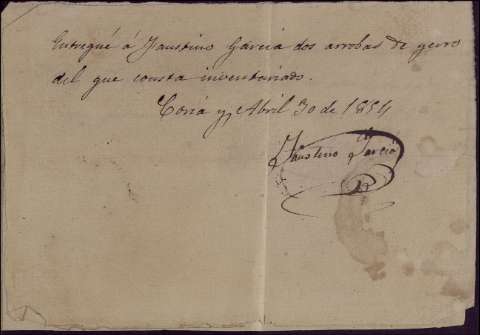 Entregué á Faustino Garcia dos arrobas de yerro
del que consta inventariado.
Coria y Abril 30 de 1854
Faustino Garcia